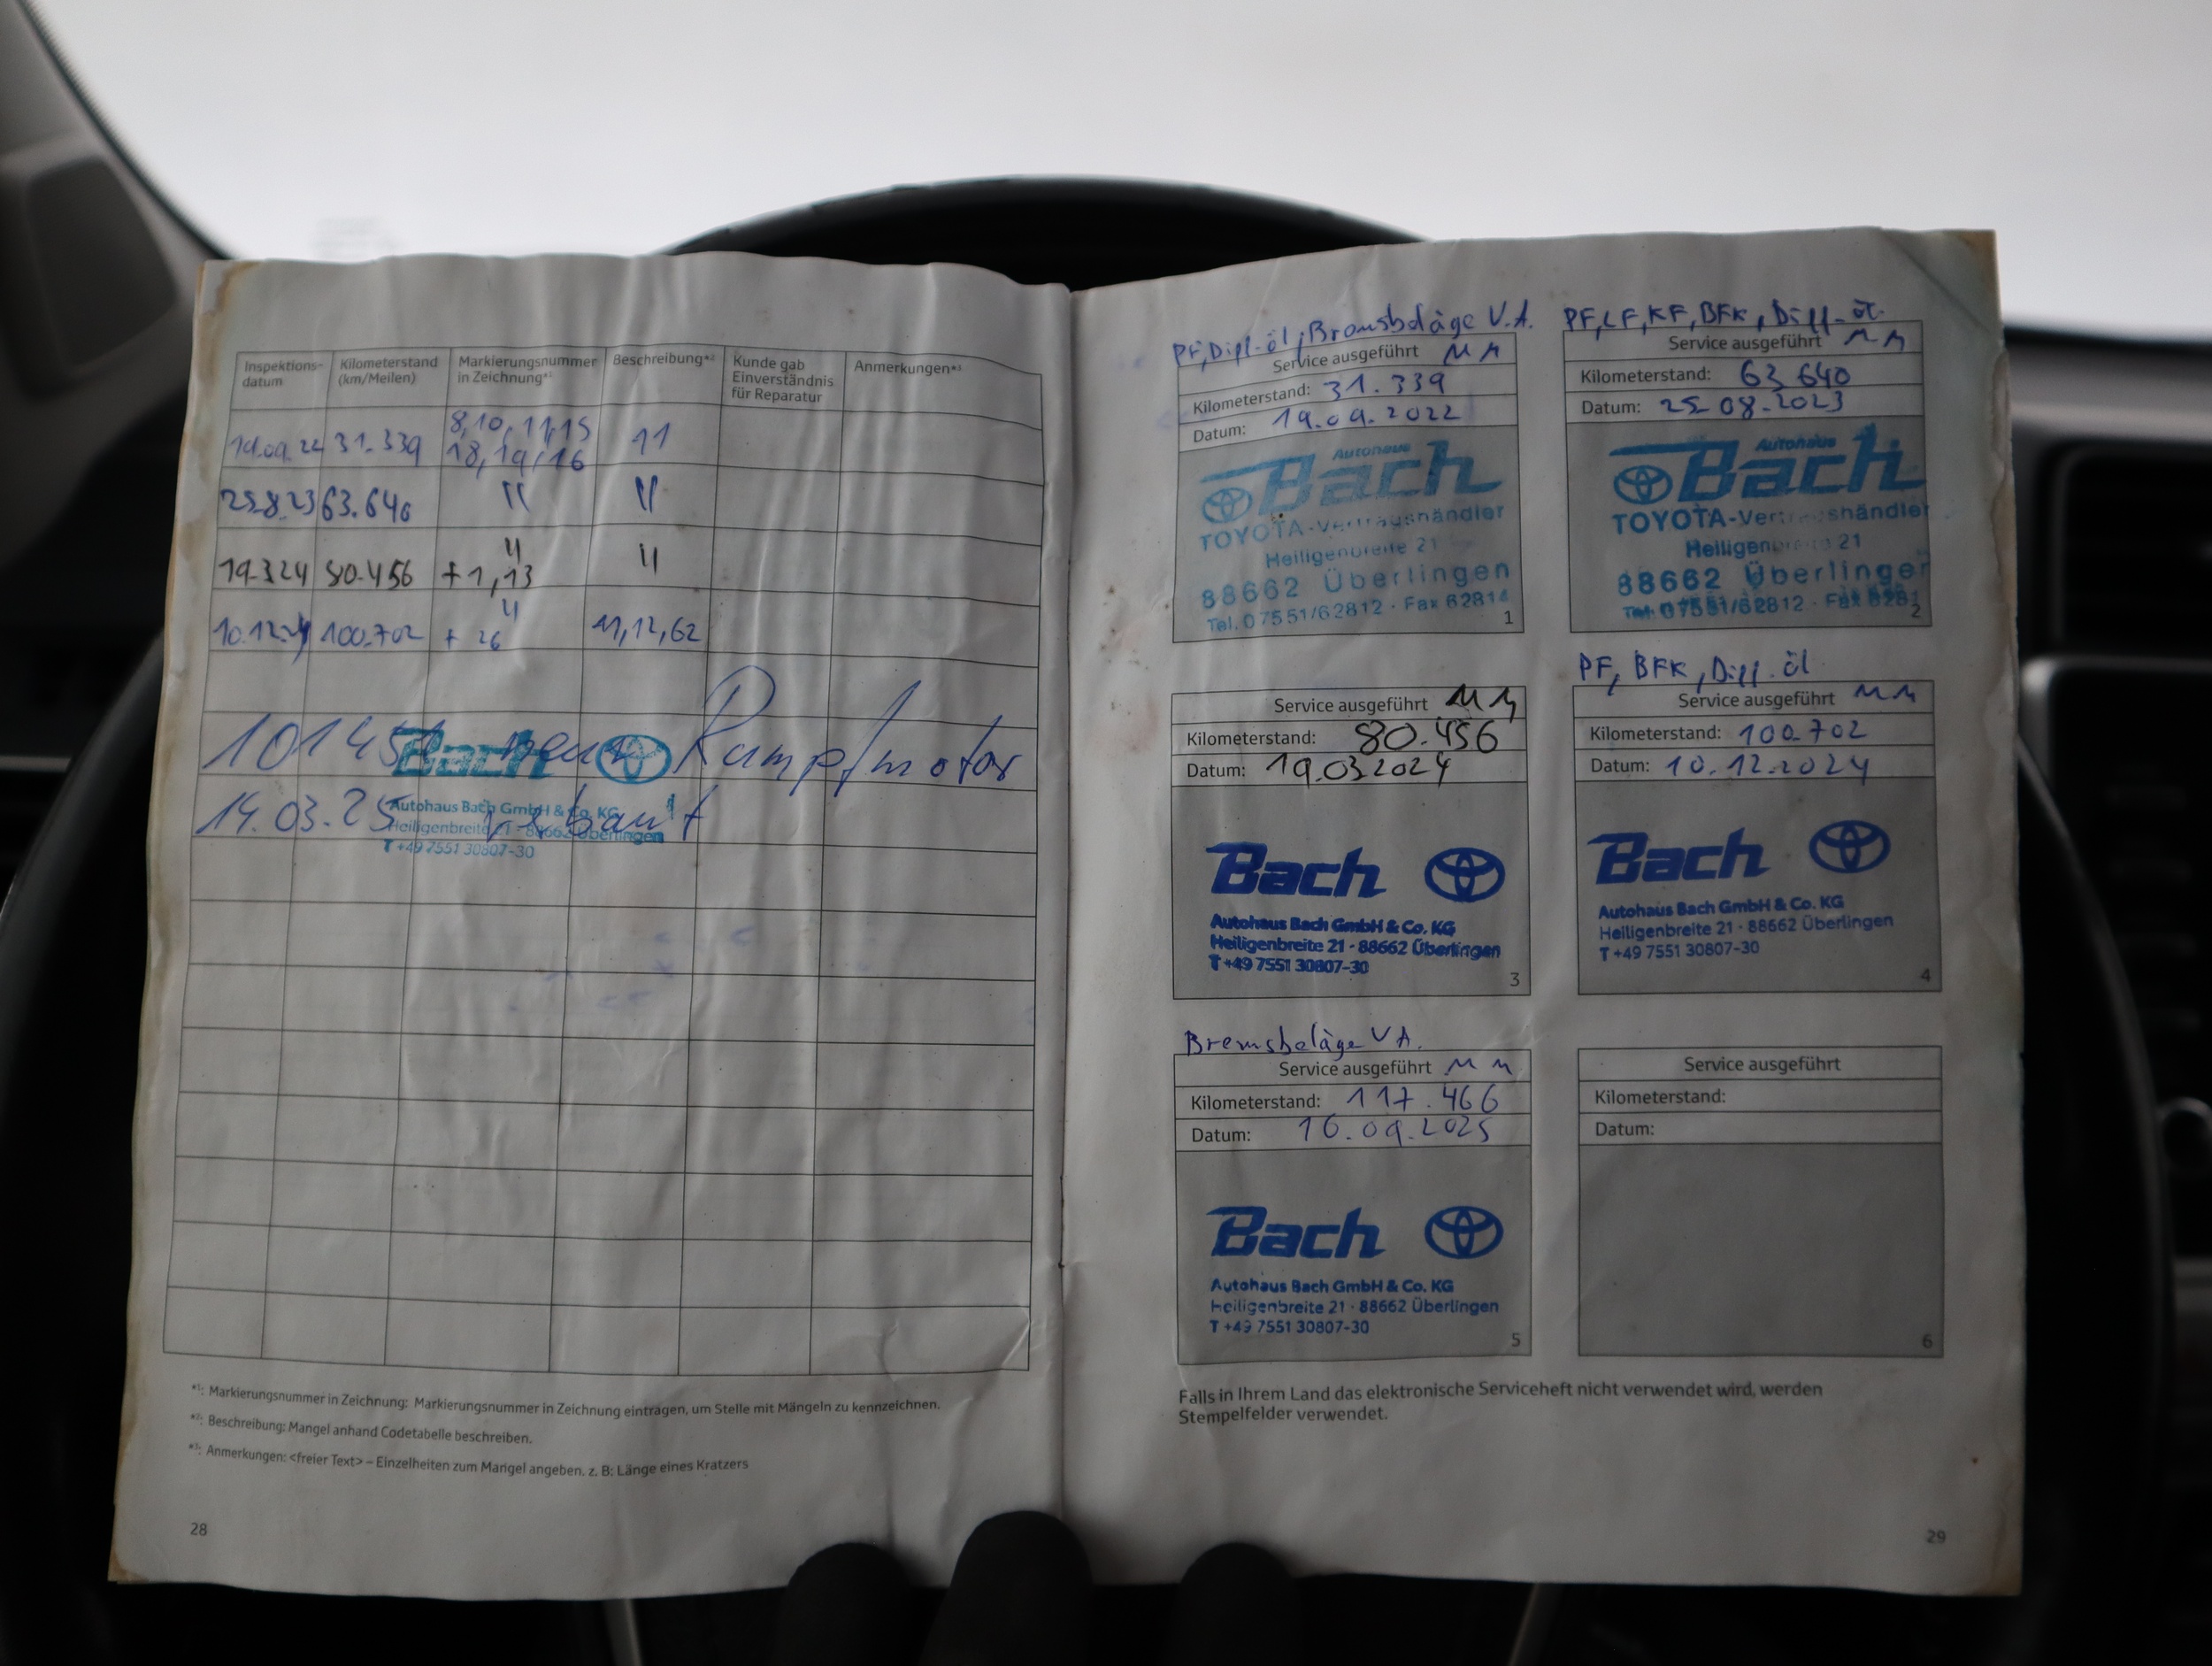 Inspektions-
datum
Kilometerstand
(km/Meilen)
Markierungsnummer
in Zeichnung*1
Beschreibung*2
Kunde gab
Einverständnis
für Reparatur
Anmerkungen*3
19.09.22 31.339 8,10,11,15 11
18,19,16
25.8.23 63.640 " "
19.3.24 80.456 " "
+1,13
10.12.24 100.702 " 11,12,62
+ 26
neuer Rumpfmotor
14.03.25 verbaut
Bach
Autohaus Bach GmbH & Co. KG
Heiligenbreite 21 - 88662 Überlingen
T +49 7551 30807-30
*1: Markierungsnummer in Zeichnung: Markierungsnummer in Zeichnung eintragen, um Stelle mit Mängeln zu kennzeichnen.
*2: Beschreibung: Mangel anhand Codetabelle beschreiben.
*3: Anmerkungen: <freier Text> – Einzelheiten zum Mangel angeben. z. B: Länge eines Kratzers
28
PF, Diff-öl, Bremsbeläge V.A.
Service ausgeführt
Kilometerstand: 31.339
Datum: 19.09.2022
Autohaus
Bach
TOYOTA-Vertragshändler
Heiligenbreite 21
88662 Überlingen
Tel. 07551/62812 · Fax 62814
1
PF, LF, KF, BFK, Diff-öl
Service ausgeführt
Kilometerstand: 63 640
Datum: 25 08.2023
Autohaus
Bach
TOYOTA-Vertragshändler
Heiligenbreite 21
88662 Überlingen
Tel. 07551/62812 · Fax 6281
2
Service ausgeführt
Kilometerstand: 80.456
Datum: 19.03.2024
Bach
Autohaus Bach GmbH & Co. KG
Heiligenbreite 21 · 88662 Überlingen
T +49 7551 30807-30
3
PF, BFK, Diff.öl
Service ausgeführt
Kilometerstand: 100.702
Datum: 10.12.2024
Bach
Autohaus Bach GmbH & Co. KG
Heiligenbreite 21 · 88662 Überlingen
T +49 7551 30807-30
4
Bremsbeläge V A.
Service ausgeführt
Kilometerstand: 117.466
Datum: 16.09.2025
Bach
Autohaus Bach GmbH & Co. KG
Heiligenbreite 21 · 88662 Überlingen
T +49 7551 30807-30
5
Service ausgeführt
Kilometerstand:
Datum:
6
Falls in Ihrem Land das elektronische Serviceheft nicht verwendet wird, werden
Stempelfelder verwendet.
29